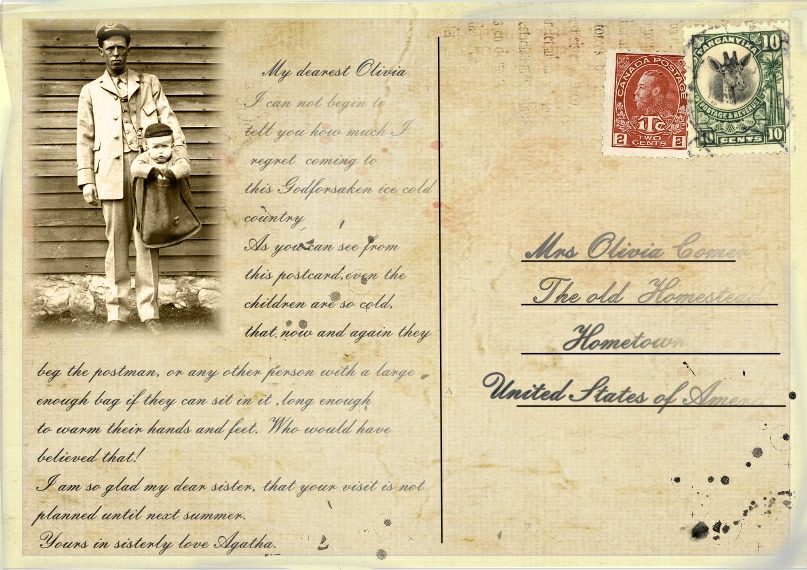 My dearest Olivia
I can not begin to
tell you how much I
regret coming to
this Godforsaken ice cold
country
As you can see from
this postcard, even the
children are so cold,
that now and again they
beg the postman, or any other person with a large
enough bag if they can sit in it, long enough
to warm their hands and feet. Who would have
believed that!
I am so glad my dear sister, that your visit is not
planned until next summer.
Yours in sisterly love Agatha.
CANADA POSTAGE
1Tc
2 2
TWO
CENTS
TANGANYIKA
10
POSTAGE & REVENUE
10 CENTS 10
Mrs Olivia Comer
The old Homestead
Hometown
United States of Amer